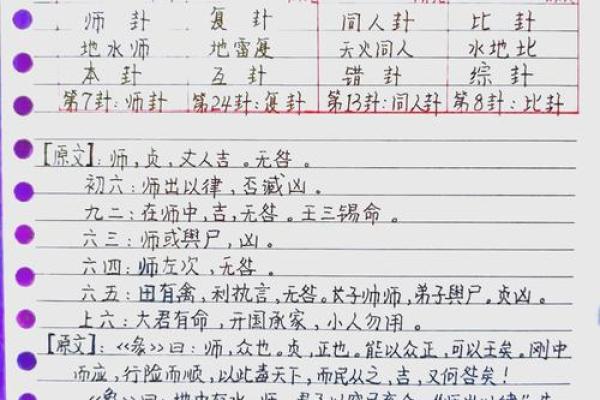 师卦 复卦 同人卦 比卦
地水师 地雷复 天火同人 水地比
本卦 互卦 错卦 综卦
第7卦:师卦 第24卦:复卦 第13卦:同人卦 第8卦:比卦
[原文]:师,贞,丈人吉。无咎。
初六:师出以律,否臧凶。
九二:在师中,吉,无咎。王三锡命。
六三:师或舆尸,凶。
六四:师左次,无咎。
六五:田有禽,利执言,无咎。长子帅师,弟子舆尸。贞凶。
上六:大君有命,开国承家,小人勿用。
[原文]:《彖》曰:师,众也。贞,正也。能以众正,可以王矣。刚中
而应,行险而顺,以此毒天下,而民从之,吉,又何咎矣!
《象》曰:地中有水,师。君子以容民畜众。"师出以律"失